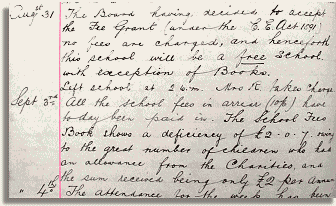 Augst 31 The Board having, decided to accept
the Fee Grant (under the E.E. Act 1891)
no fees are charged, and henceforth
this school will be a free School.
with exception of Books.
Left school at 2 Mrs K. takes charge
Sept 3rd All the school fees in arrear (10/-) have
to-day been paid in. The School Fees
Book shows a deficiency of £2.0.7. owing
to the great number of children who has
an allowance from the Charities, and
the sum received being only £2 per Annum
" 4th The Attendance for the week has been